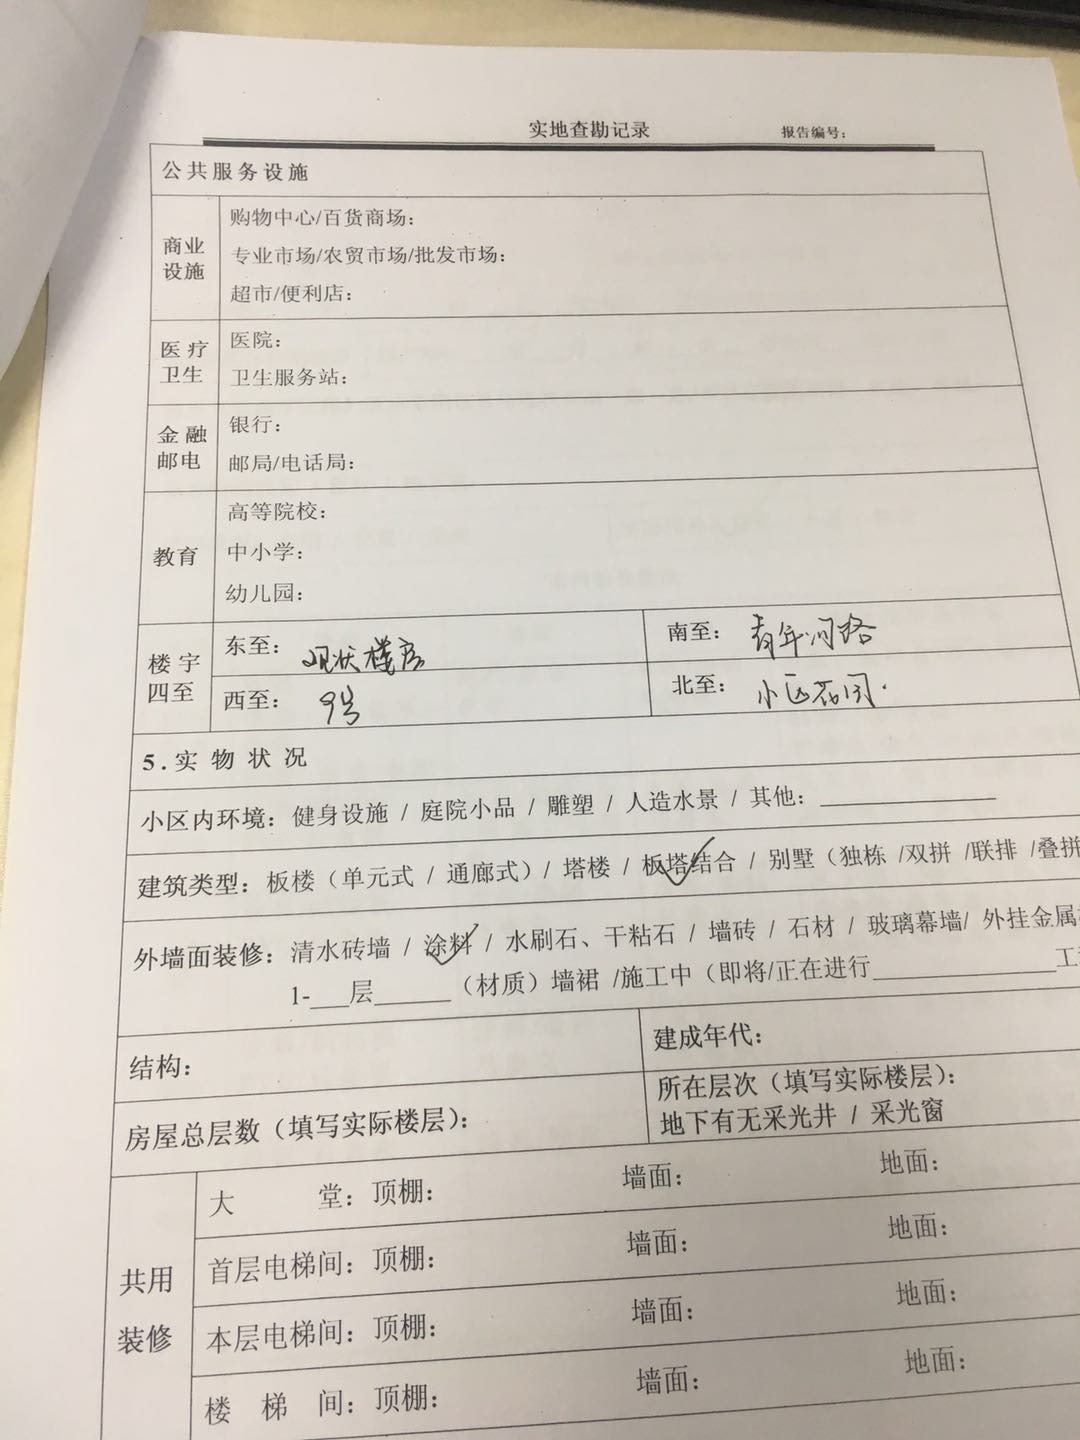 实地查勘记录 报告编号：
公共服务设施
商业设施
购物中心/百货商场：
专业市场/农贸市场/批发市场：
超市/便利店：
医疗卫生
医院：
卫生服务站：
金融邮电
银行：
邮局/电话局：
教育
高等院校：
中小学：
幼儿园：
楼宇四至
东至： 现状楼房 南至： 青年沟路
西至： 9号 北至： 小区花园.
5.实物状况
小区内环境：健身设施 / 庭院小品 / 雕塑 / 人造水景 / 其他：__________
建筑类型：板楼（单元式 / 通廊式）/ 塔楼 / 板塔结合 / 别墅（独栋 /双拼 /联排 /叠拼
外墙面装修：清水砖墙 / 涂料 / 水刷石、干粘石 / 墙砖 / 石材 / 玻璃幕墙/ 外挂金属
1-___层______（材质）墙裙 /施工中（即将/正在进行__________工
结构： 建成年代：
房屋总层数（填写实际楼层）： 所在层次（填写实际楼层）：
地下有无采光井 / 采光窗
共用装修
大堂：顶棚： 墙面： 地面：
首层电梯间：顶棚： 墙面： 地面：
本层电梯间：顶棚： 墙面： 地面：
楼梯间：顶棚： 墙面： 地面：